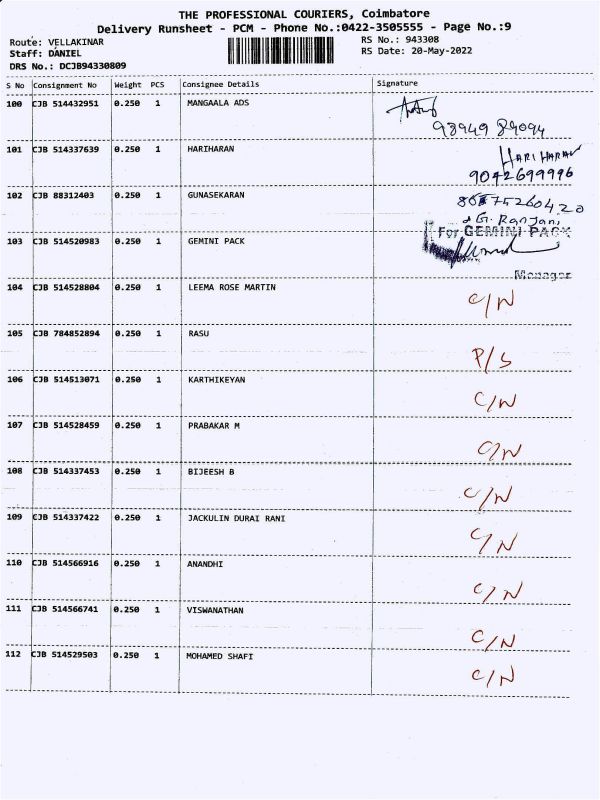 THE PROFESSIONAL COURIERS, Coimbatore
Delivery Runsheet - PCM - Phone No.:0422-3505555 - Page No.:9
Route: VELLAKINAR
RS No.: 943308
Staff: DANIEL
RS Date: 20-May-2022
DRS No.: DCJB94330809
S No Consignment No Weight PCS Consignee Details Signature
100 CJB 514432951 0.250 1 MANGAALA ADS
98949 89094
101 CJB 514337639 0.250 1 HARIHARAN
HARIHARAN
9042699996
102 CJB 88312403 0.250 1 GUNASEKARAN
75260420
G. Ranjani
103 CJB 514520983 0.250 1 GEMINI PACK
For GEMINI PACK
Manager
104 CJB 514528804 0.250 1 LEEMA ROSE MARTIN
C/N
105 CJB 784852894 0.250 1 RASU
P/S
106 CJB 514513071 0.250 1 KARTHIKEYAN
C/N
107 CJB 514528459 0.250 1 PRABAKAR M
C/N
108 CJB 514337453 0.250 1 BIJEESH B
C/N
109 CJB 514337422 0.250 1 JACKULIN DURAI RANI
C/N
110 CJB 514566916 0.250 1 ANANDHI
C/N
111 CJB 514566741 0.250 1 VISWANATHAN
C/N
112 CJB 514529503 0.250 1 MOHAMED SHAFI
C/N